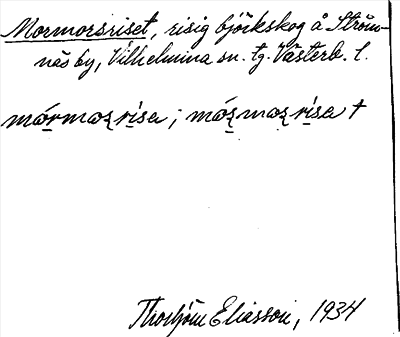 Mormorsriset, risig björkskog å Ström-
näs by, Vilhelmina sn. tg. Västerb. l.
mórmoʐrísa ; móʐmoʐrísa †
Thorbjörn Eliasson, 1934